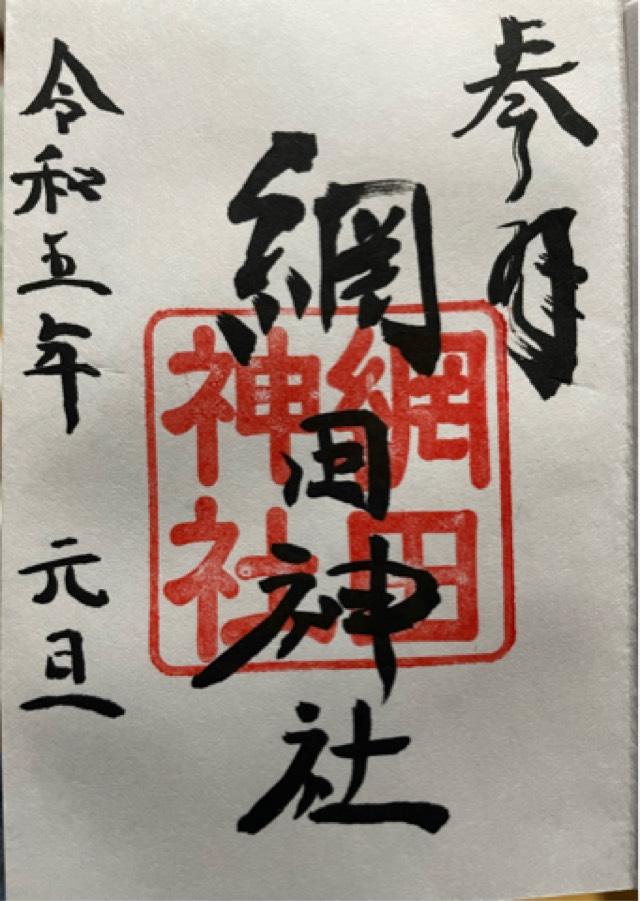 参拝
網田神社
網田
神社
令和五年 元旦